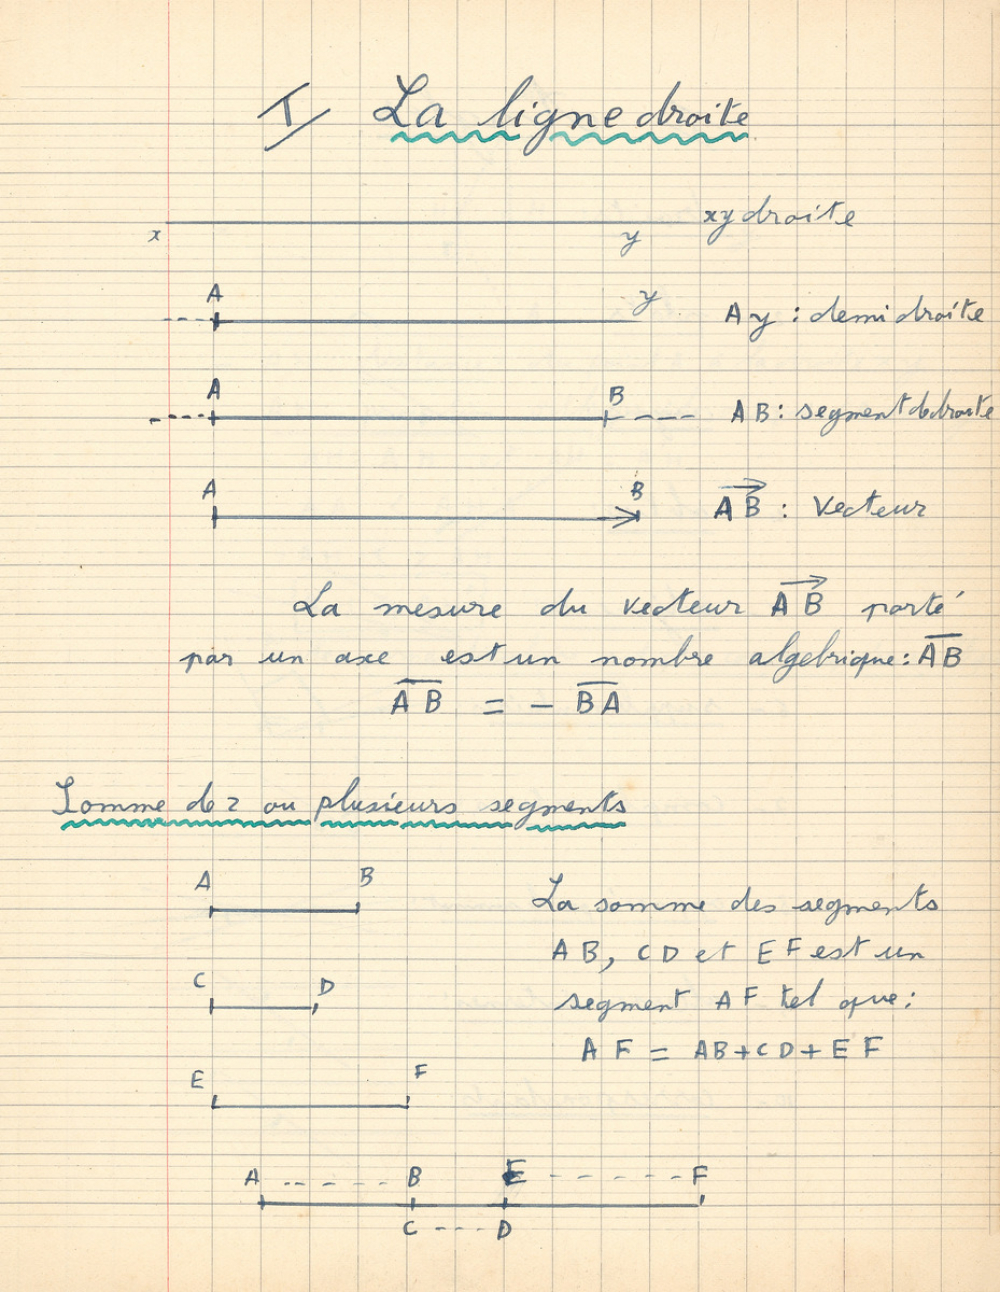 I/ La ligne droite
x y xy droite
A y Ay : demi droite
A B AB : segment de droite
A B $\overrightarrow{AB}$ : Vecteur
La mesure du vecteur $\overrightarrow{AB}$ porté
par un axe est un nombre algebrique : $\overline{AB}$
$\overline{AB} = - \overline{BA}$
Somme de 2 ou plusieurs segments
A B
C D
E F
La somme des segments
AB, CD et EF est un
segment AF tel que :
AF = AB + CD + EF
A B E F
C D